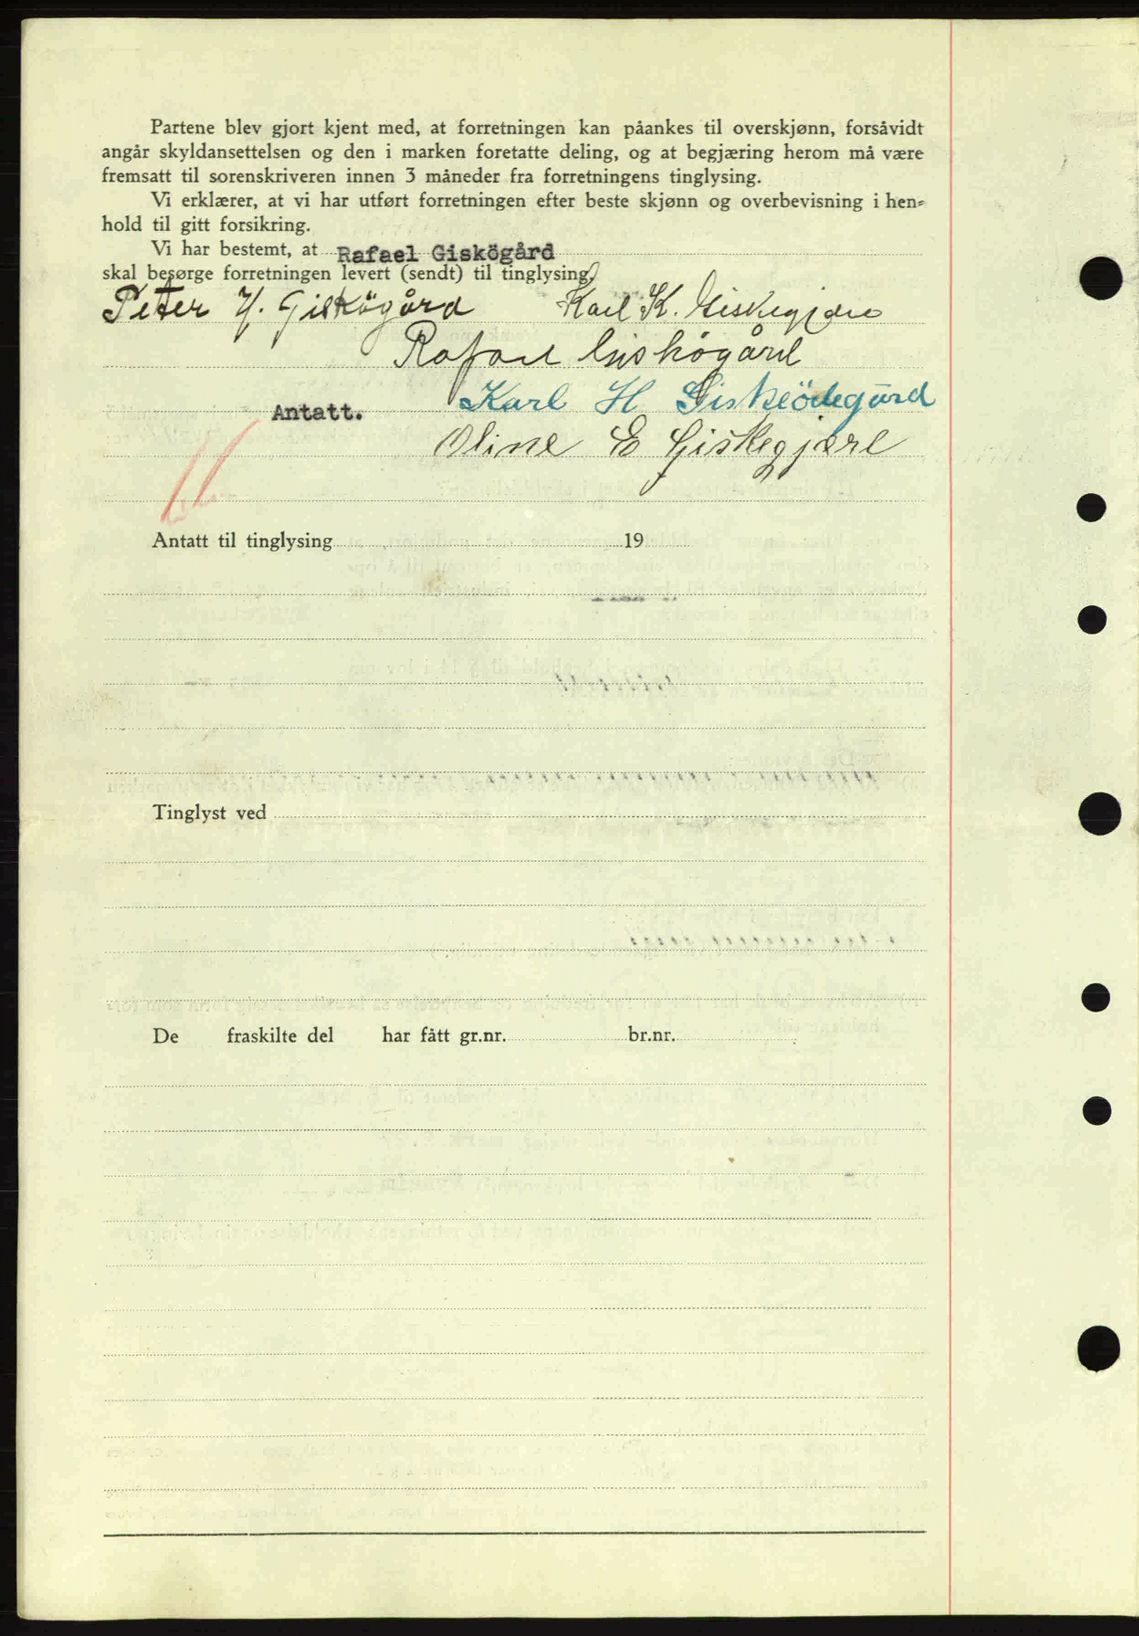 Partene blev gjort kjent med, at forretningen kan påankes til overskjønn, forsåvidt
angår skyldansettelsen og den i marken foretatte deling, og at begjæring herom må være
fremsatt til sorenskriveren innen 3 måneder fra forretningens tinglysing.
Vi erklærer, at vi har utført forretningen efter beste skjønn og overbevisning i hen-
hold til gitt forsikring.
Vi har bestemt, at Rafael Giskögård
skal besørge forretningen levert (sendt) til tinglysing.
Peter Y. Giskögård Karl K. Giskegjære
Rafael Giskögård
Karl H Giskeödegård
Antatt.
Oline E Giskegjære
Antatt til tinglysing 19
Tinglyst ved
De fraskilte del har fått gr.nr. br.nr.